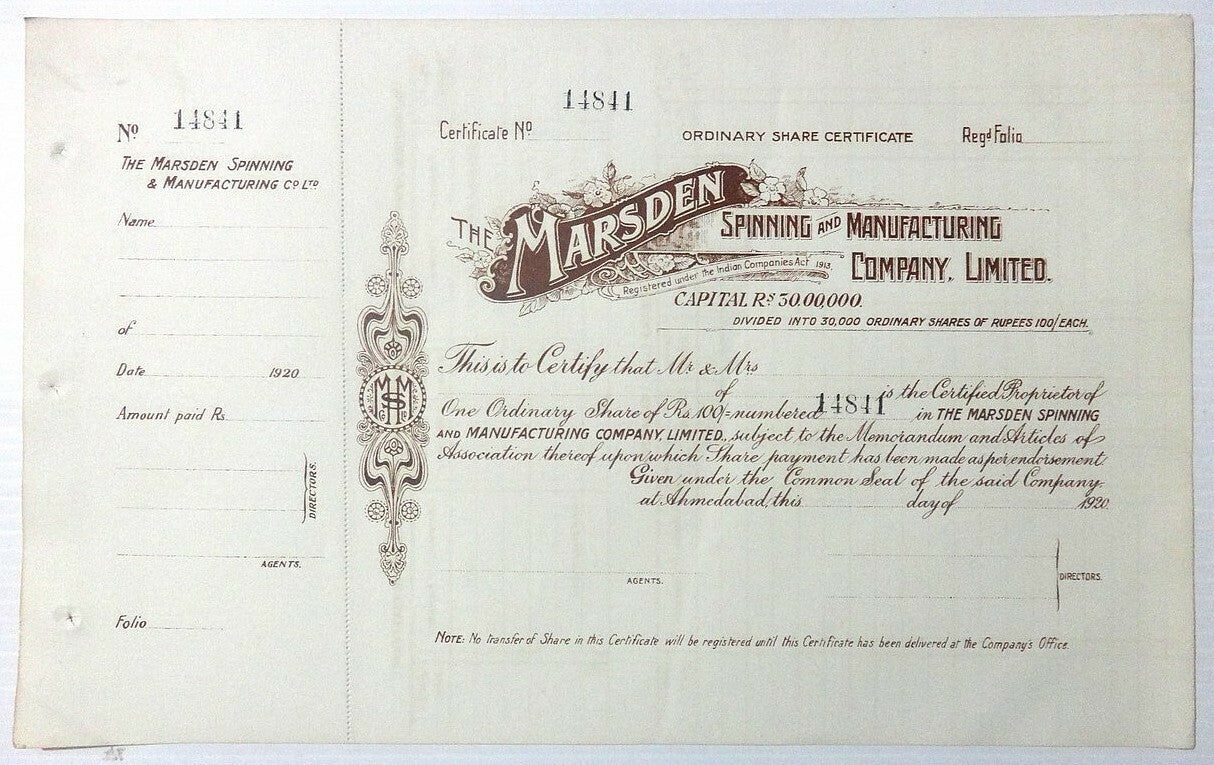 No 14841
THE MARSDEN SPINNING
& MANUFACTURING CO LTD
Name
of
Date 1920
Amount paid Rs.
DIRECTORS.
AGENTS.
Folio
14841
Certificate No
ORDINARY SHARE CERTIFICATE
Regd Folio
THE MARSDEN
SPINNING AND MANUFACTURING
COMPANY, LIMITED.
Registered under the Indian Companies Act 1913.
CAPITAL RS 30,00,000.
DIVIDED INTO 30,000 ORDINARY SHARES OF RUPEES 100/EACH.
This is to Certify that Mr & Mrs
of is the Certified Proprietor of
One Ordinary Share of Rs 100/= numbered 14841 in THE MARSDEN SPINNING
AND MANUFACTURING COMPANY, LIMITED, subject to the Memorandum and Articles of
Association thereof upon which Share payment has been made as per endorsement
Given under the Common Seal of the said Company.
at Ahmedabad, this day of 1920
AGENTS.
DIRECTORS.
NOTE: No transfer of Share in this Certificate will be registered until this Certificate has been delivered at the Company's Office.